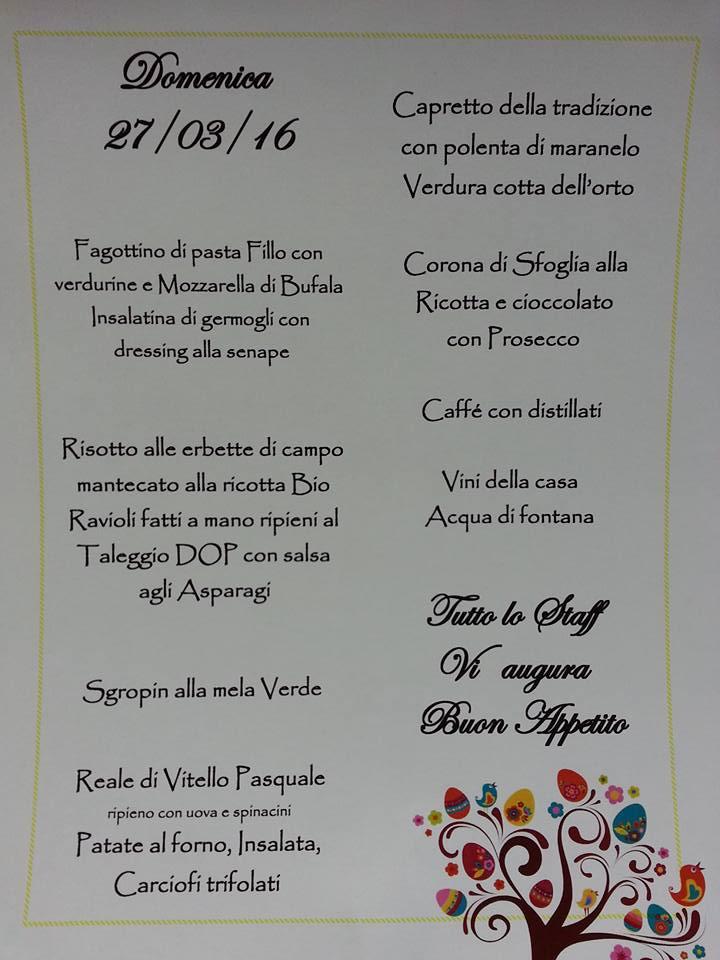 Domenica
27/03/16
Fagottino di pasta Fillo con
verdurine e Mozzarella di Bufala
Insalatina di germogli con
dressing alla senape
Risotto alle erbette di campo
mantecato alla ricotta Bio
Ravioli fatti a mano ripieni al
Taleggio DOP con salsa
agli Asparagi
Sgropin alla mela Verde
Reale di Vitello Pasquale
ripieno con uova e spinacini
Patate al forno, Insalata,
Carciofi trifolati
Capretto della tradizione
con polenta di maranelo
Verdura cotta dell'orto
Corona di Sfoglia alla
Ricotta e cioccolato
con Prosecco
Caffé con distillati
Vini della casa
Acqua di fontana
Tutto lo Staff
Vi augura
Buon Appetito